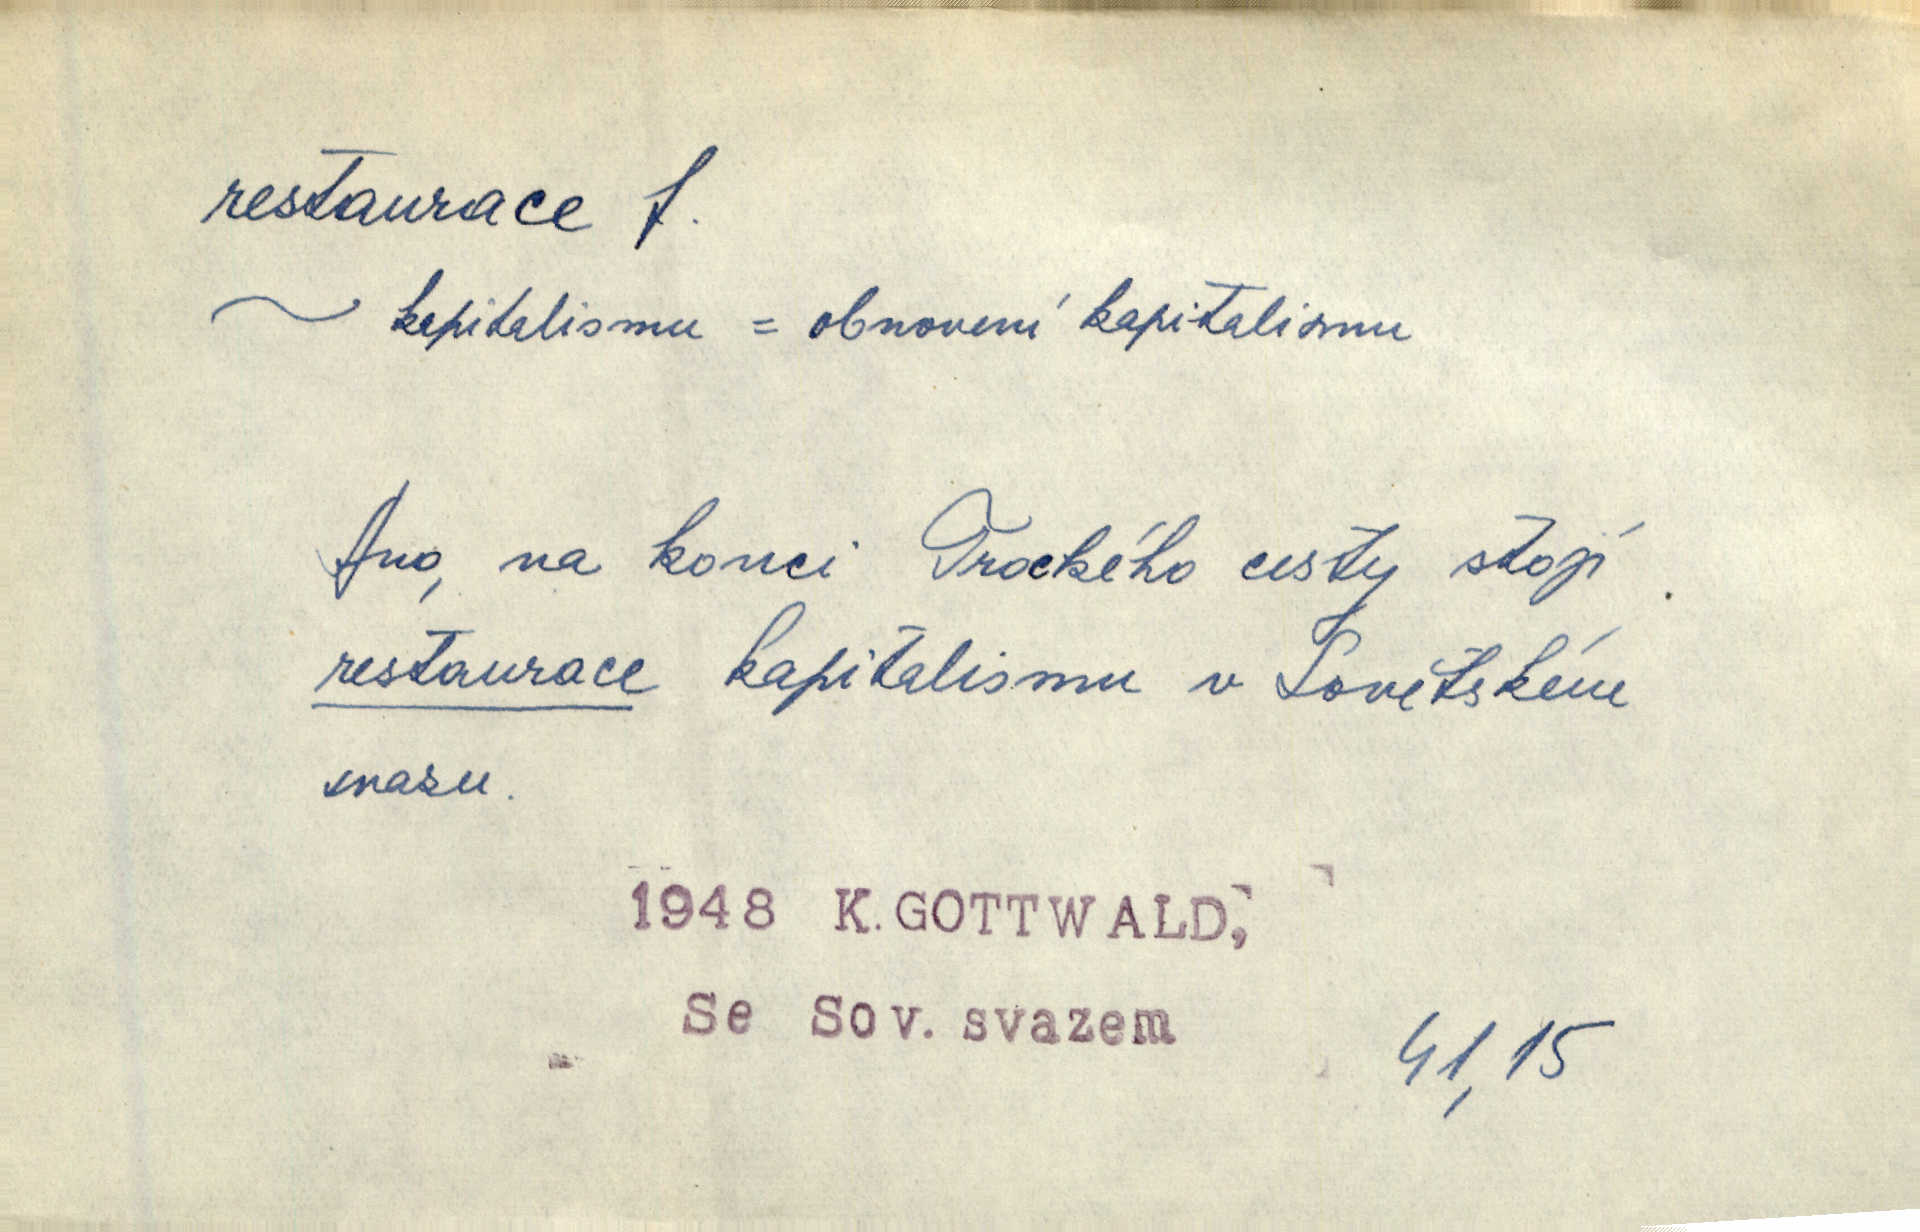 restaurace f.
~ kapitalismu = obnovení kapitalismu
Ano, na konci Trockého cesty stojí
restaurace kapitalismu v Sovětském
svazu.
1948 K. GOTTWALD,
Se Sov. svazem
41,15